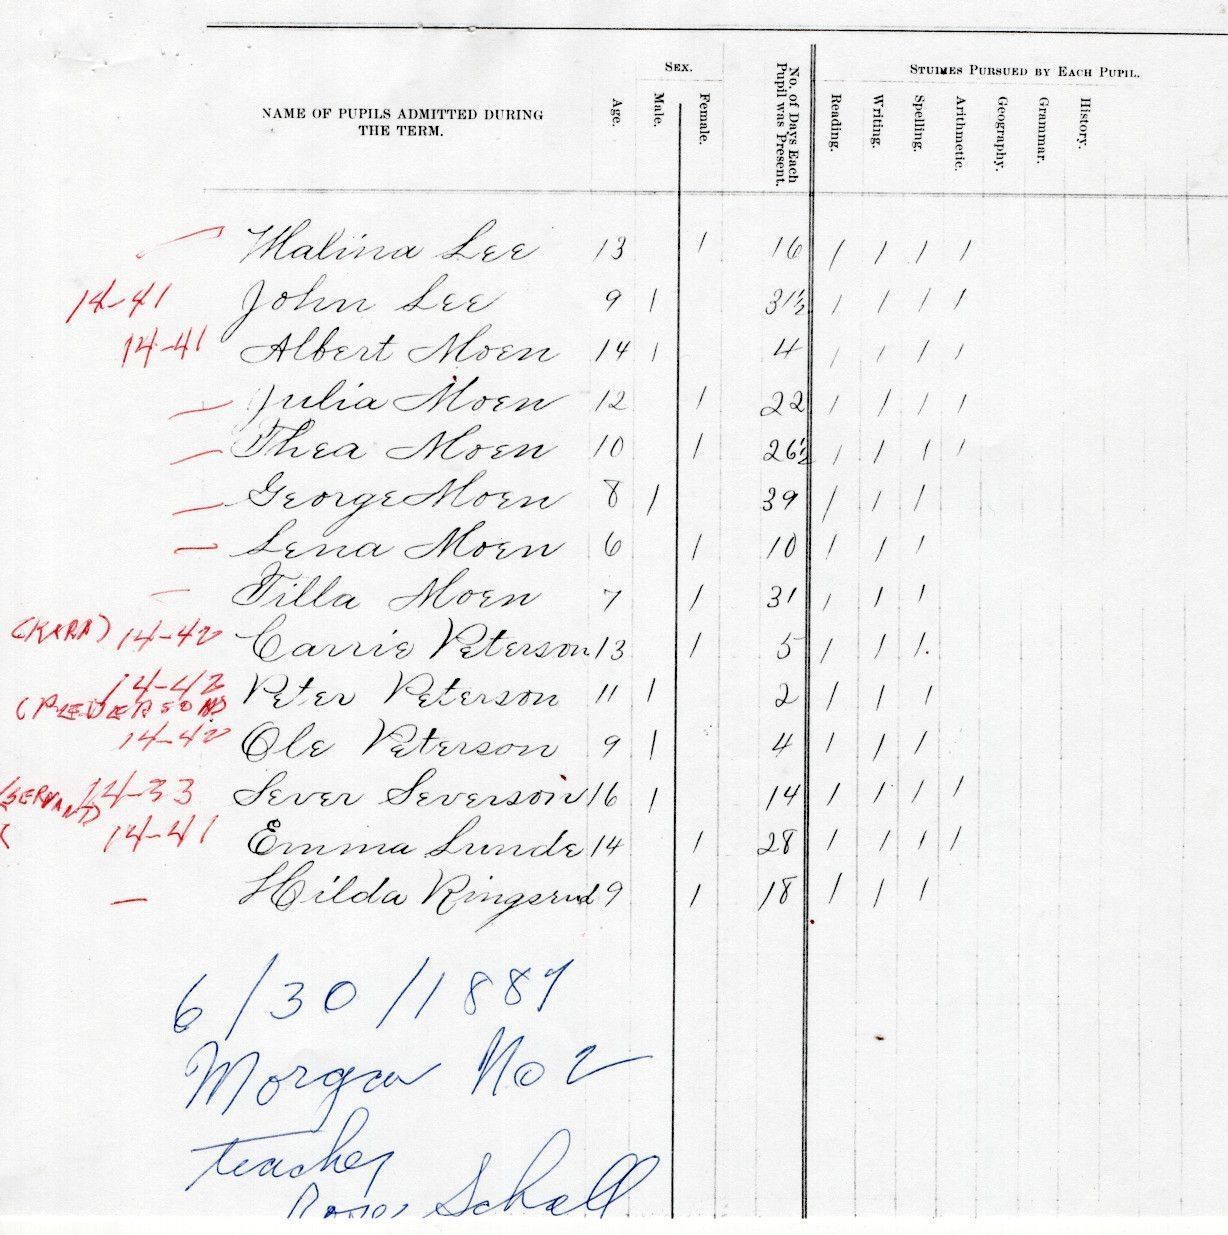 SEX.
STUDIES PURSUED BY EACH PUPIL.
NAME OF PUPILS ADMITTED DURING
THE TERM.
Age.
Male.
Female.
No. of Days Each
Pupil was Present.
Reading.
Writing.
Spelling.
Arithmetic.
Geography.
Grammar.
History.
Malina Lee 13 1 16 1 1 1 1
14-41 John Lee 9 1 31½ 1 1 1 1
14-41 Albert Moen 14 1 4 1 1 1 1
Julia Moen 12 1 22 1 1 1 1
Thea Moen 10 1 26½ 1 1 1 1
George Moen 8 1 39 1 1 1
Lena Moen 6 1 10 1 1 1
Tilla Moen 7 1 31 1 1 1
(KARA) 14-42 Carrie Peterson 13 1 5 1 1 1
14-42 Peter Peterson 11 1 2 1 1 1
14-42 Ole Peterson 9 1 4 1 1 1
(SERVANT) 14-33 Sever Severson 16 1 14 1 1 1 1
14-41 Emma Lunde 14 1 28 1 1 1 1
Hilda Ringsrud 9 1 18 1 1 1
6/30/1887
Morgan No 2
teacher
Schell